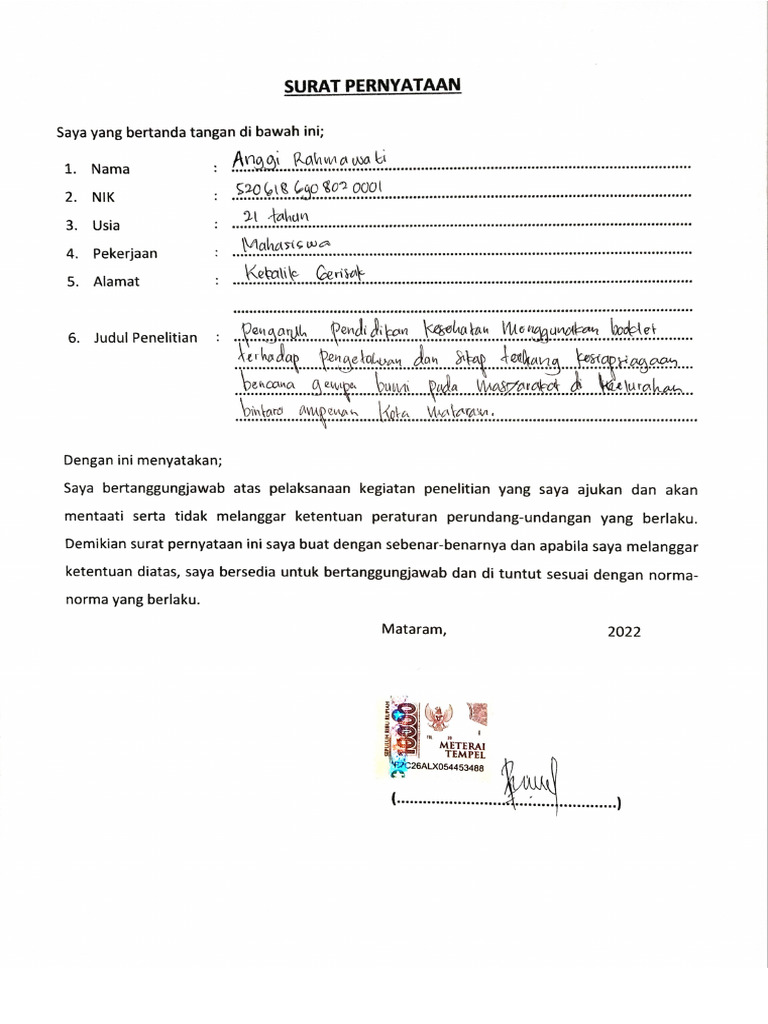 SURAT PERNYATAAN
Saya yang bertanda tangan di bawah ini;
1. Nama : Anggi Rahmawati
2. NIK : 5206186908020001
3. Usia : 21 tahun
4. Pekerjaan : Mahasiswa
5. Alamat : Kebalik Gerisak
6. Judul Penelitian : Pengaruh pendidikan kesehatan menggunakan booklet
terhadap pengetahuan dan sikap tentang kesiapsiagaan
bencana gempa bumi pada masyarakat di Kelurahan
bintaro ampenan Kota mataram.
Dengan ini menyatakan;
Saya bertanggungjawab atas pelaksanaan kegiatan penelitian yang saya ajukan dan akan
mentaati serta tidak melanggar ketentuan peraturan perundang-undangan yang berlaku.
Demikian surat pernyataan ini saya buat dengan sebenar-benarnya dan apabila saya melanggar
ketentuan diatas, saya bersedia untuk bertanggungjawab dan di tuntut sesuai dengan norma-
norma yang berlaku.
Mataram, 2022
SEPULUH RIBU RUPIAH
10000
METERAI
TEMPEL
C26ALX054453488
(................................................)